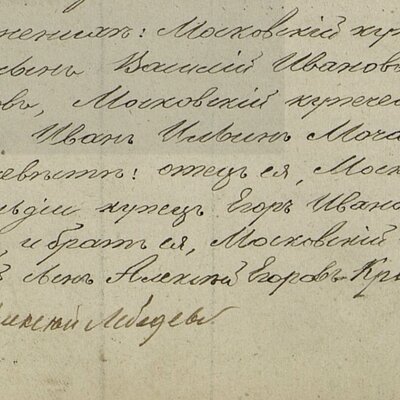 Московскій ку
сынъ Василій Иванов
овъ, Московскій купечес
Иванъ Ильинъ Моча
невѣсты: отецъ ея, Моск
гильдіи купецъ Егоръ Ивано
, и братъ ея, Московскій
сынъ Алексѣй Егоровъ Кры
Алексій Лебедевъ